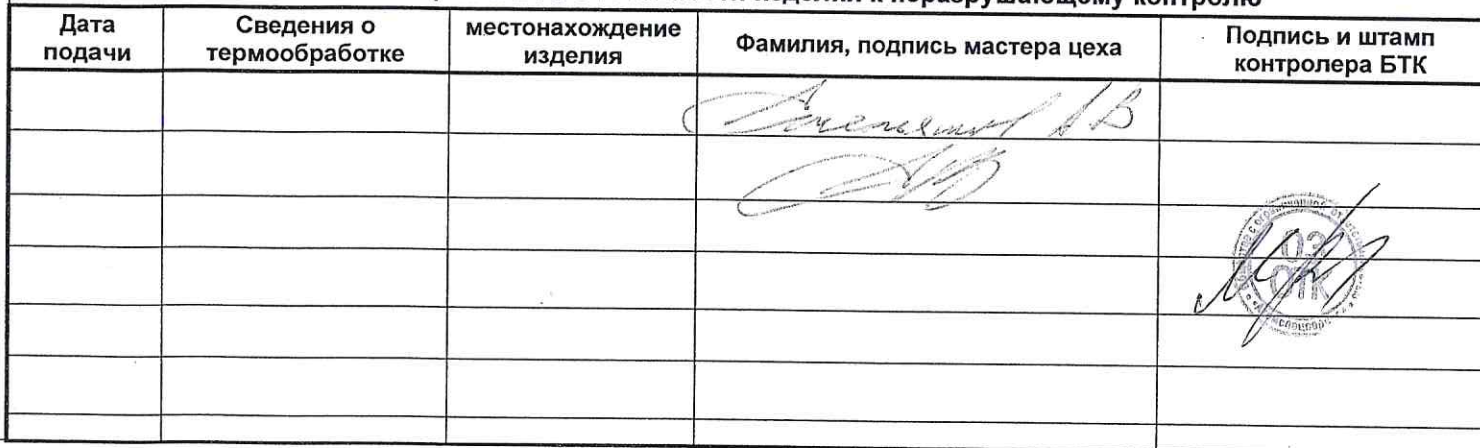 изделия к неразрушающему контролю
Дата подачи
Сведения о термообработке
местонахождение изделия
Фамилия, подпись мастера цеха
Подпись и штамп контролера БТК
А В
03
ОТК